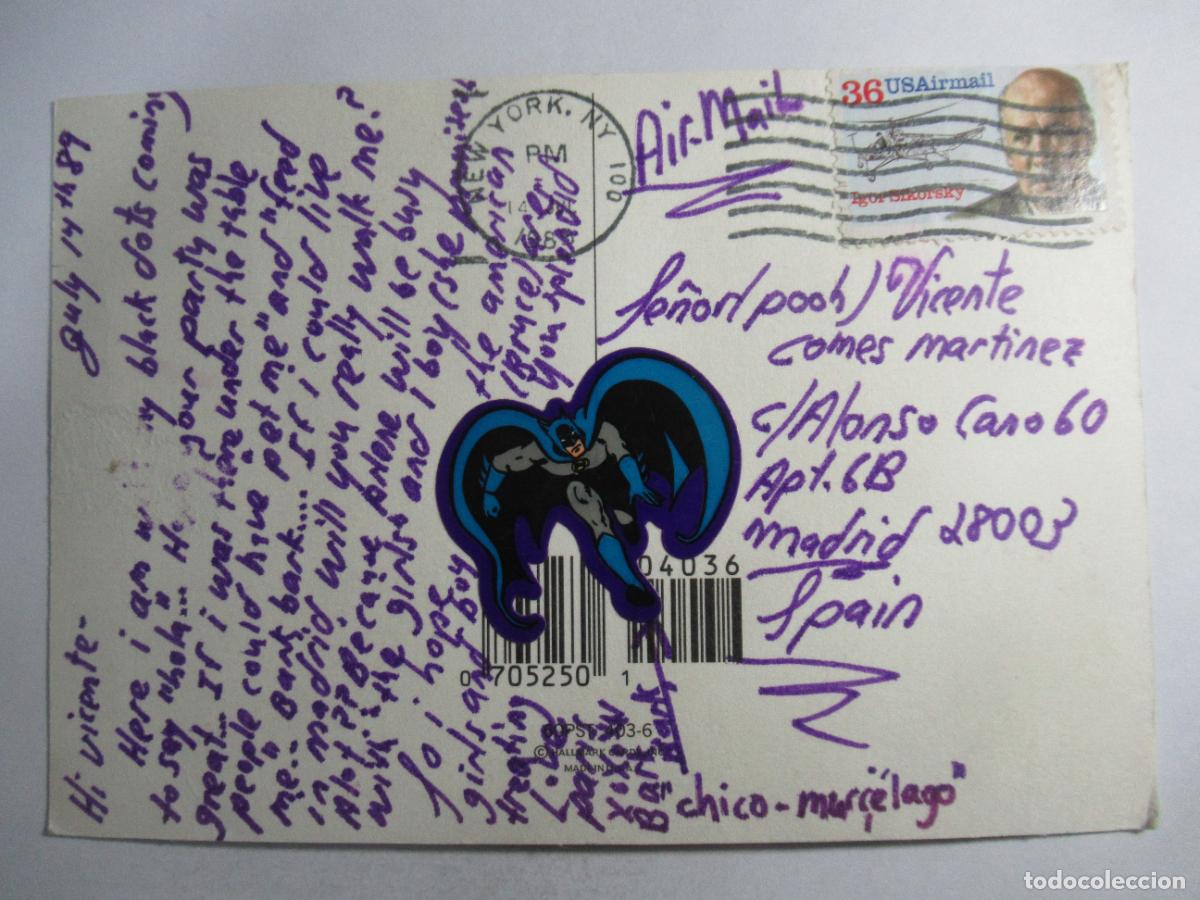 july 14th 89
Hi vicente-
Here i am my black dots coming
to say "hola".. your party was
great... If i was there under the table
people could have pet me" and "feed
me.. Bark bark.... If i could live
in madrid will you really walk me?
Alot?? Because will be busy
with the girls and 1 boy (she
So i hope the american
girls and boy (Bruce)
treating you
Love
Bark
"chico-murçélago"
NEW YORK, NY 100
PM
14
Air-Mail
36 USAirmail
Igor Sikorsky
Señor (pooh) Vicente
comes martinez
c/Alonso Cano 60
Apt. 6B
Madrid 28003
Spain
04036
0 705250 1
403-6
© HALLMARK CARDS, INC.
todocoleccion